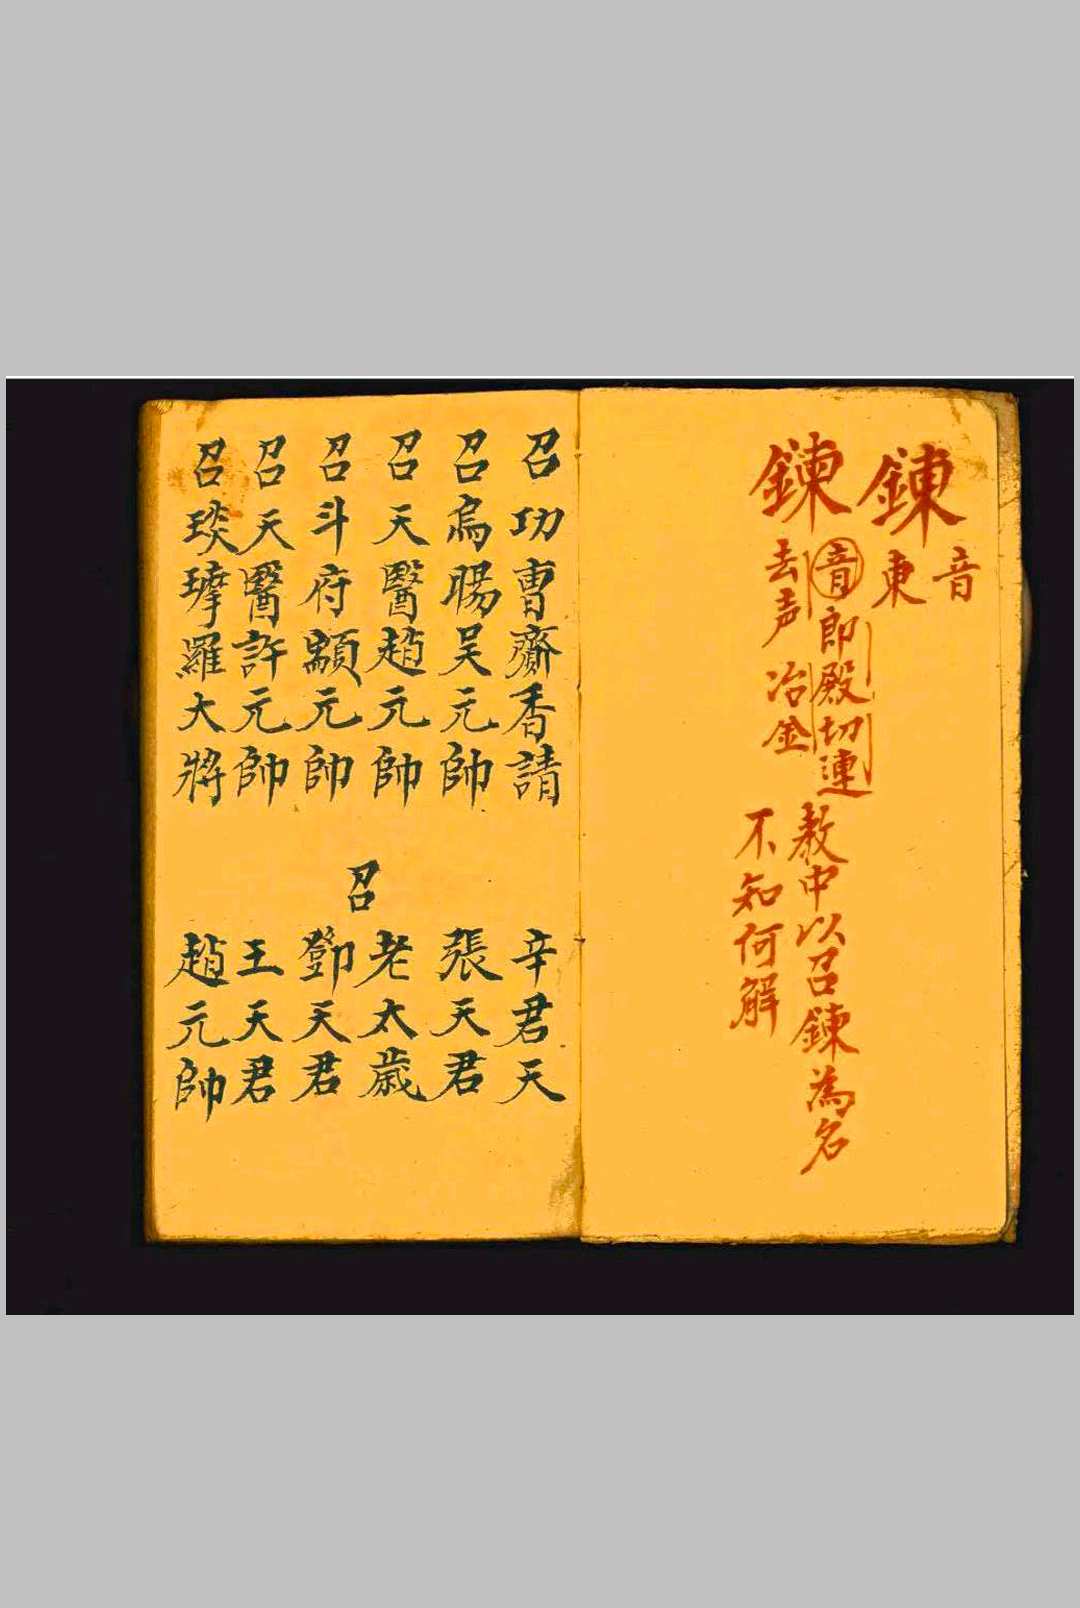 鍊 音東
鍊 音即殿切連去声冶金
教中以召鍊為名
不知何解
召功曹齋香請
召烏暘吴元帥
召天醫趙元帥
召斗府顯元帥
召天醫許元帥
召琰㺬羅大將
召
辛君天
張天君
老太歲
鄧天君
王天君
趙元帥